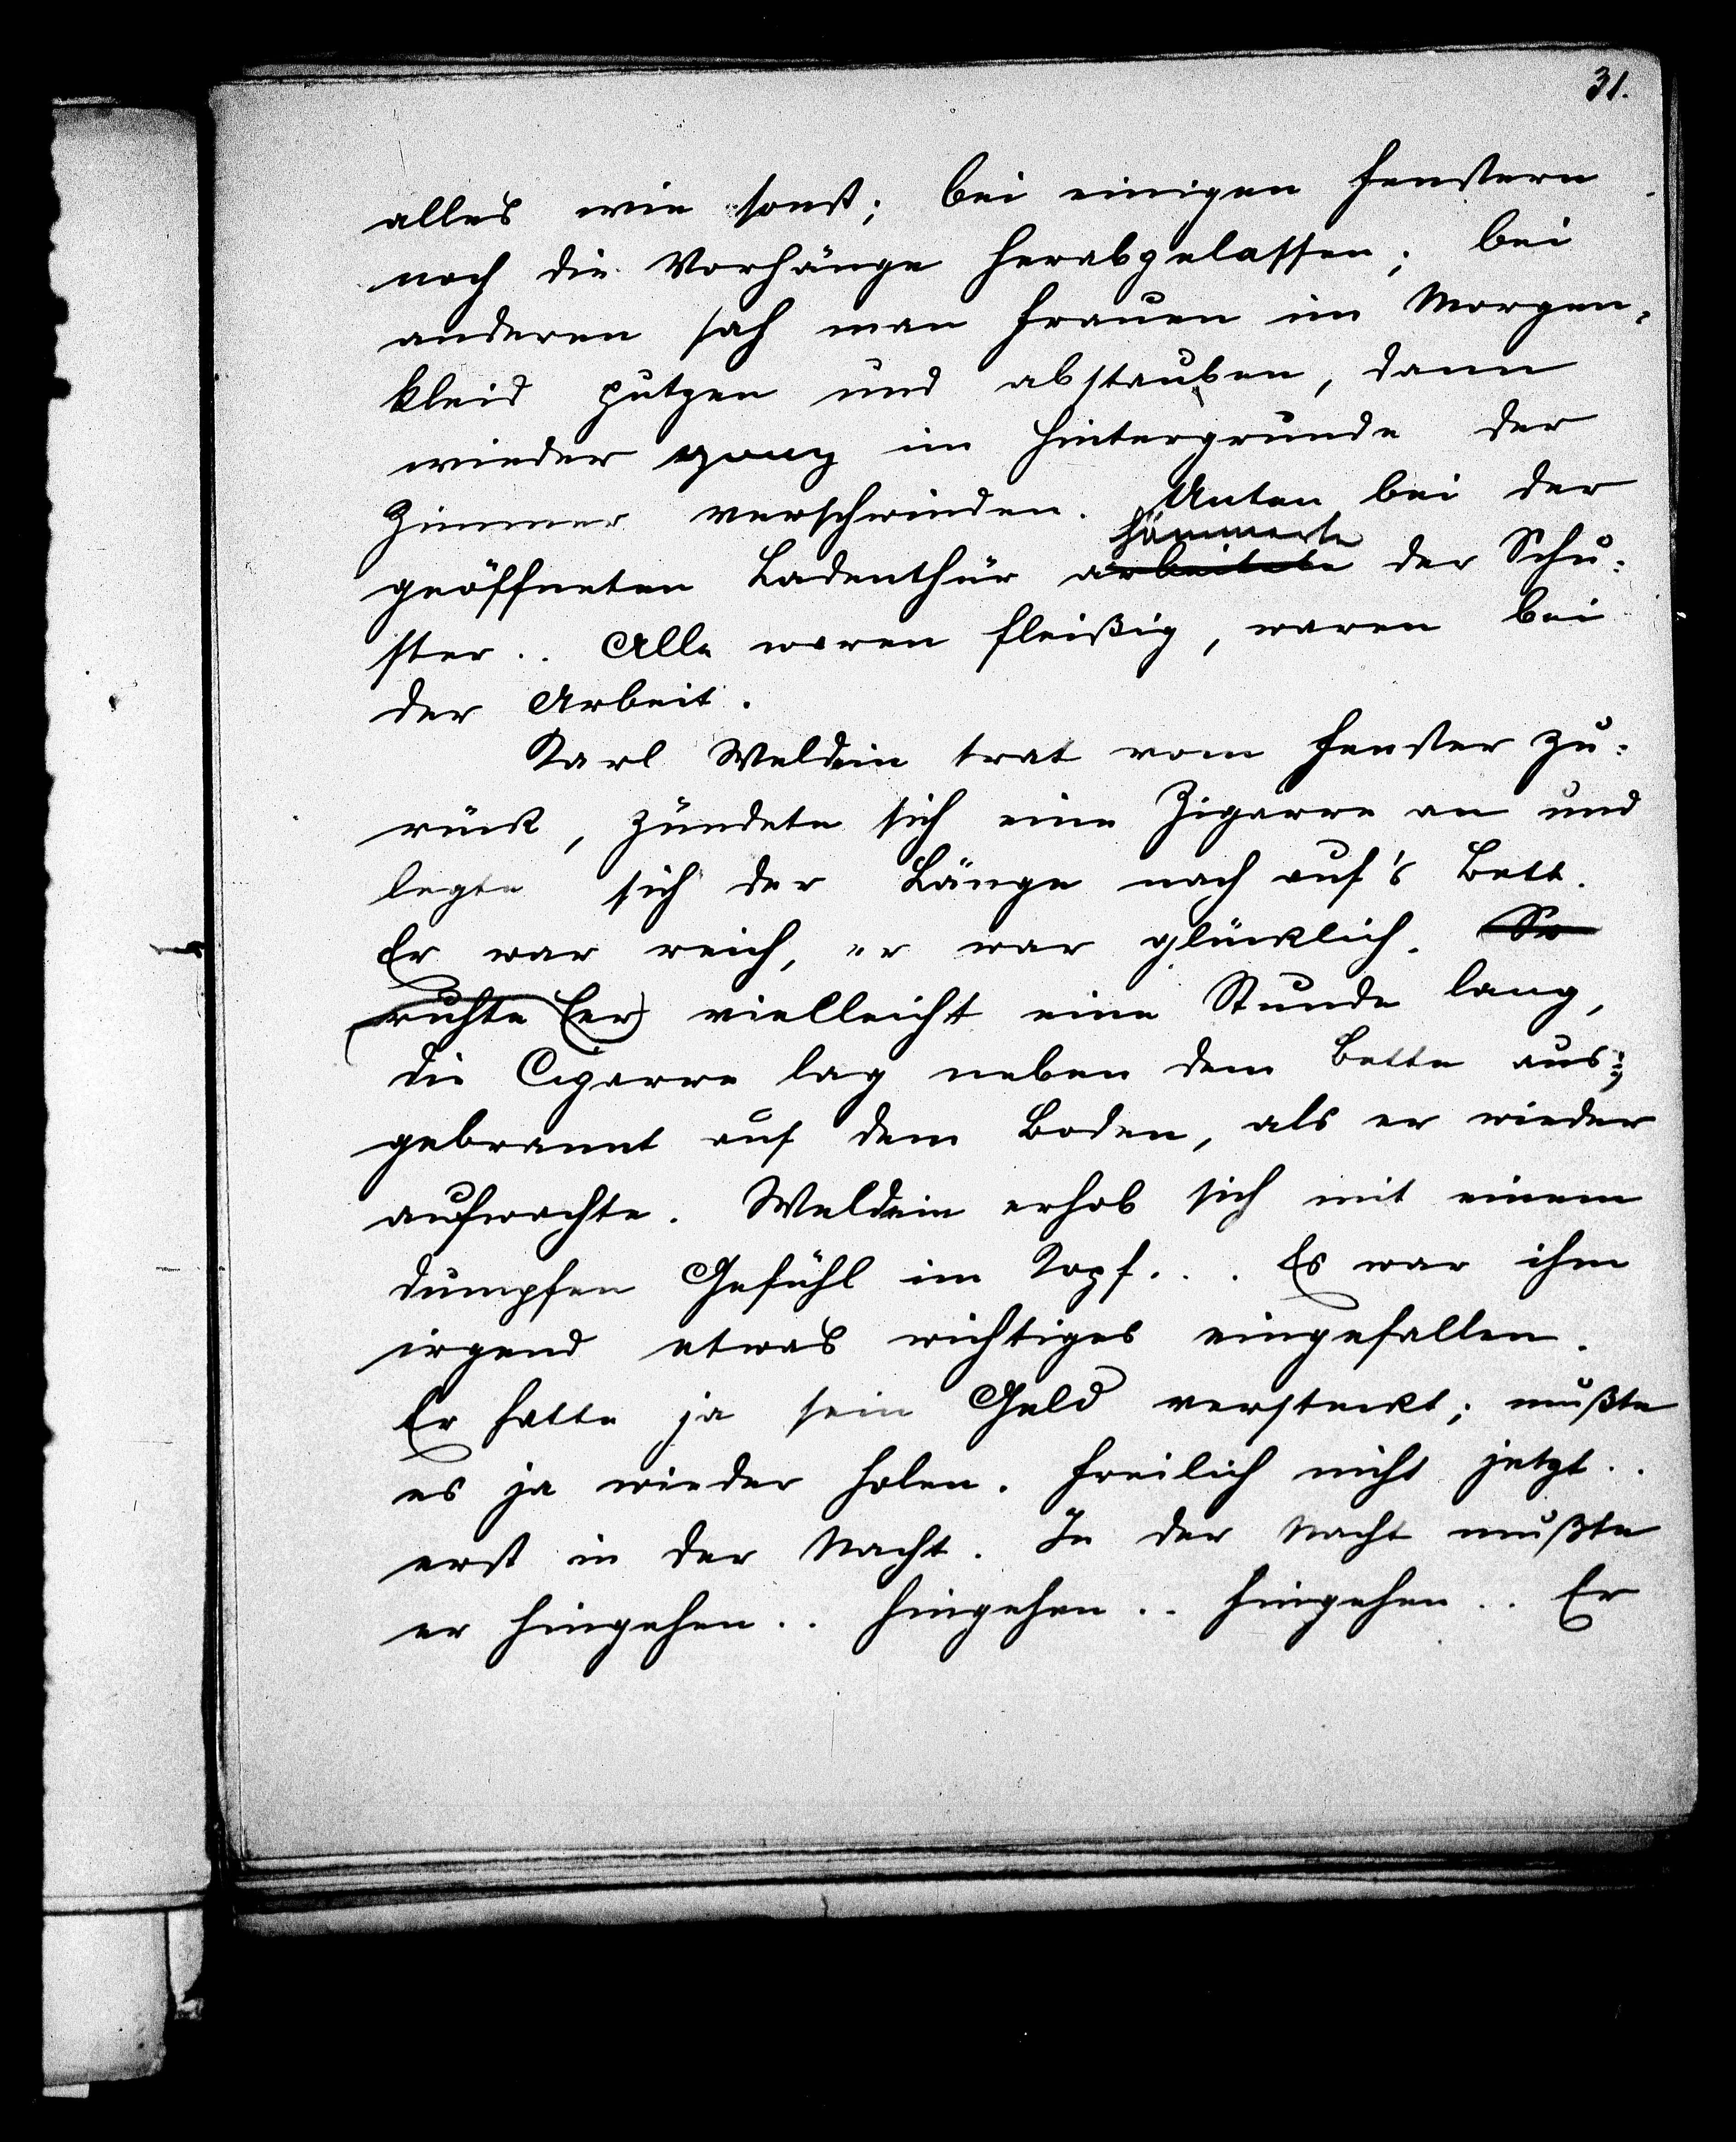 31.
alles wie sonst; bei einigen Fenstern
noch die Vorhänge herabgelassen; bei
anderen sah man Frauen im Morgen-
kleid putzen und abstauben, dann
wieder ganz im Hintergrunde der
Zimmer verschwinden. Unten bei der
hämmerte
geöffneten Ladenthür arbeitete der Schu-
ster.. Alle waren fleißig, waren bei
der Arbeit.
Karl Weldein trat vom Fenster zu-
rück, zündete sich eine Zigarre an und
legte sich der Länge nach auf's Bett.
Er war reich, er war glücklich. So
ruhte (er) vielleicht eine Stunde lang,
die Cigarre lag neben dem Bette aus-
gebrannt auf dem Boden, als er wieder
aufwachte. Weldein erhob sich mit einem
dumpfen Gefühl im Kopf... Es war ihm
irgend etwas wichtiges eingefallen.
Er hatte ja sein Geld versteckt; mußte
es ja wieder holen. Freilich nicht jetzt..
erst in der Nacht. In der Nacht mußte
er hingehen.. hingehen.. hingehen.. Er